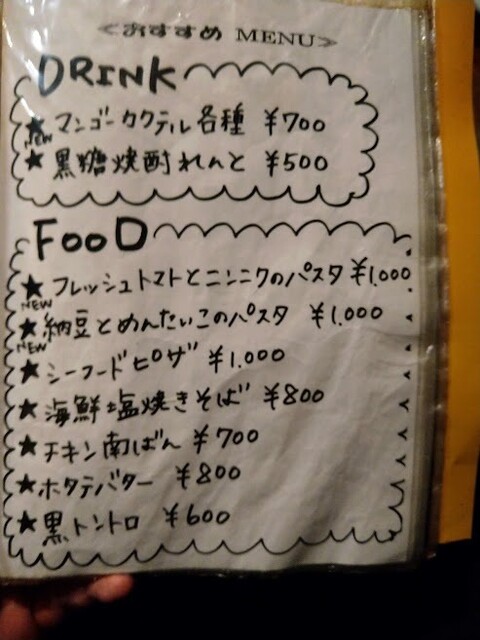 <おすすめ MENU>
DRINK
★マンゴーカクテル各種 ¥700
NEW
★黒糖焼酎れんと ¥500
FOOD
★フレッシュトマトとニンニクのパスタ ¥1,000
NEW
★納豆とめんたいこのパスタ ¥1,000
NEW
★シーフードピザ ¥1,000
★海鮮塩焼きそば ¥800
★チキン南ばん ¥700
★ホタテバター ¥800
★黒トントロ ¥600